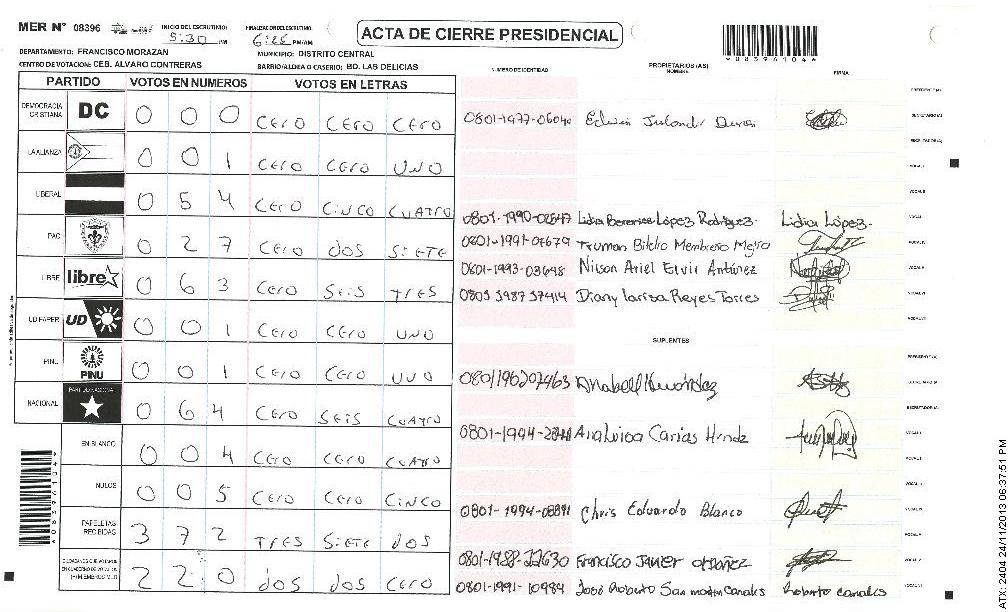 MER N° 08396
INICIO DEL ESCRUTINIO: 5:30 PM
FINALIZACION DEL ESCRUTINIO: PM/AM
ACTA DE CIERRE PRESIDENCIAL
DEPARTAMENTO: FRANCISCO MORAZAN
MUNICIPIO: DISTRITO CENTRAL
CENTRO DE VOTACION: CEB. ALVARO CONTRERAS
BARRIO/ALDEA O CASERIO: BO. LAS DELICIAS
PARTIDO VOTOS EN NUMEROS VOTOS EN LETRAS
NUMERO DE IDENTIDAD
PROPIETARIOS (AS)
NOMBRE
FIRMA
DEMOCRACIA CRISTIANA DC 0 0 0 CERO CERO CERO
LA ALIANZA 0 0 1 CERO CERO UNO
LIBERAL 0 5 4 CERO CINCO CUATRO
PAC 0 2 7 CERO DOS SIETE
LIBRE libre 0 6 3 CERO SEIS TRES
UD FAPER UD 0 0 1 CERO CERO UNO
PINU PINU 0 0 1 CERO CERO UNO
NACIONAL PARTIDO NACIONAL 0 6 4 CERO SEIS CUATRO
EN BLANCO 0 0 4 CERO CERO CUATRO
NULOS 0 0 5 CERO CERO CINCO
PAPELETAS RECIBIDAS 3 7 2 TRES SIETE DOS
2 2 0 DOS DOS CERO
Edwin
Lidia Berenice López Rodríguez Lidia López
0801-1991-07679 Truman Bitelio Membreño Mejia
0801-1993-03698 Nilson Ariel Elvir Antúnez
Diany Larisa Reyes Torres
SUPLENTES
0801196207463 Anabell Hernández
Ana Luisa Carias
Chris Eduardo Blanco
0801-1988-22630 Francisco Javier Ordoñez
0801-1991-10984 José Roberto San Martin Canales Roberto Canales
ATX-2404 24/11/2013 06:37:51 PM